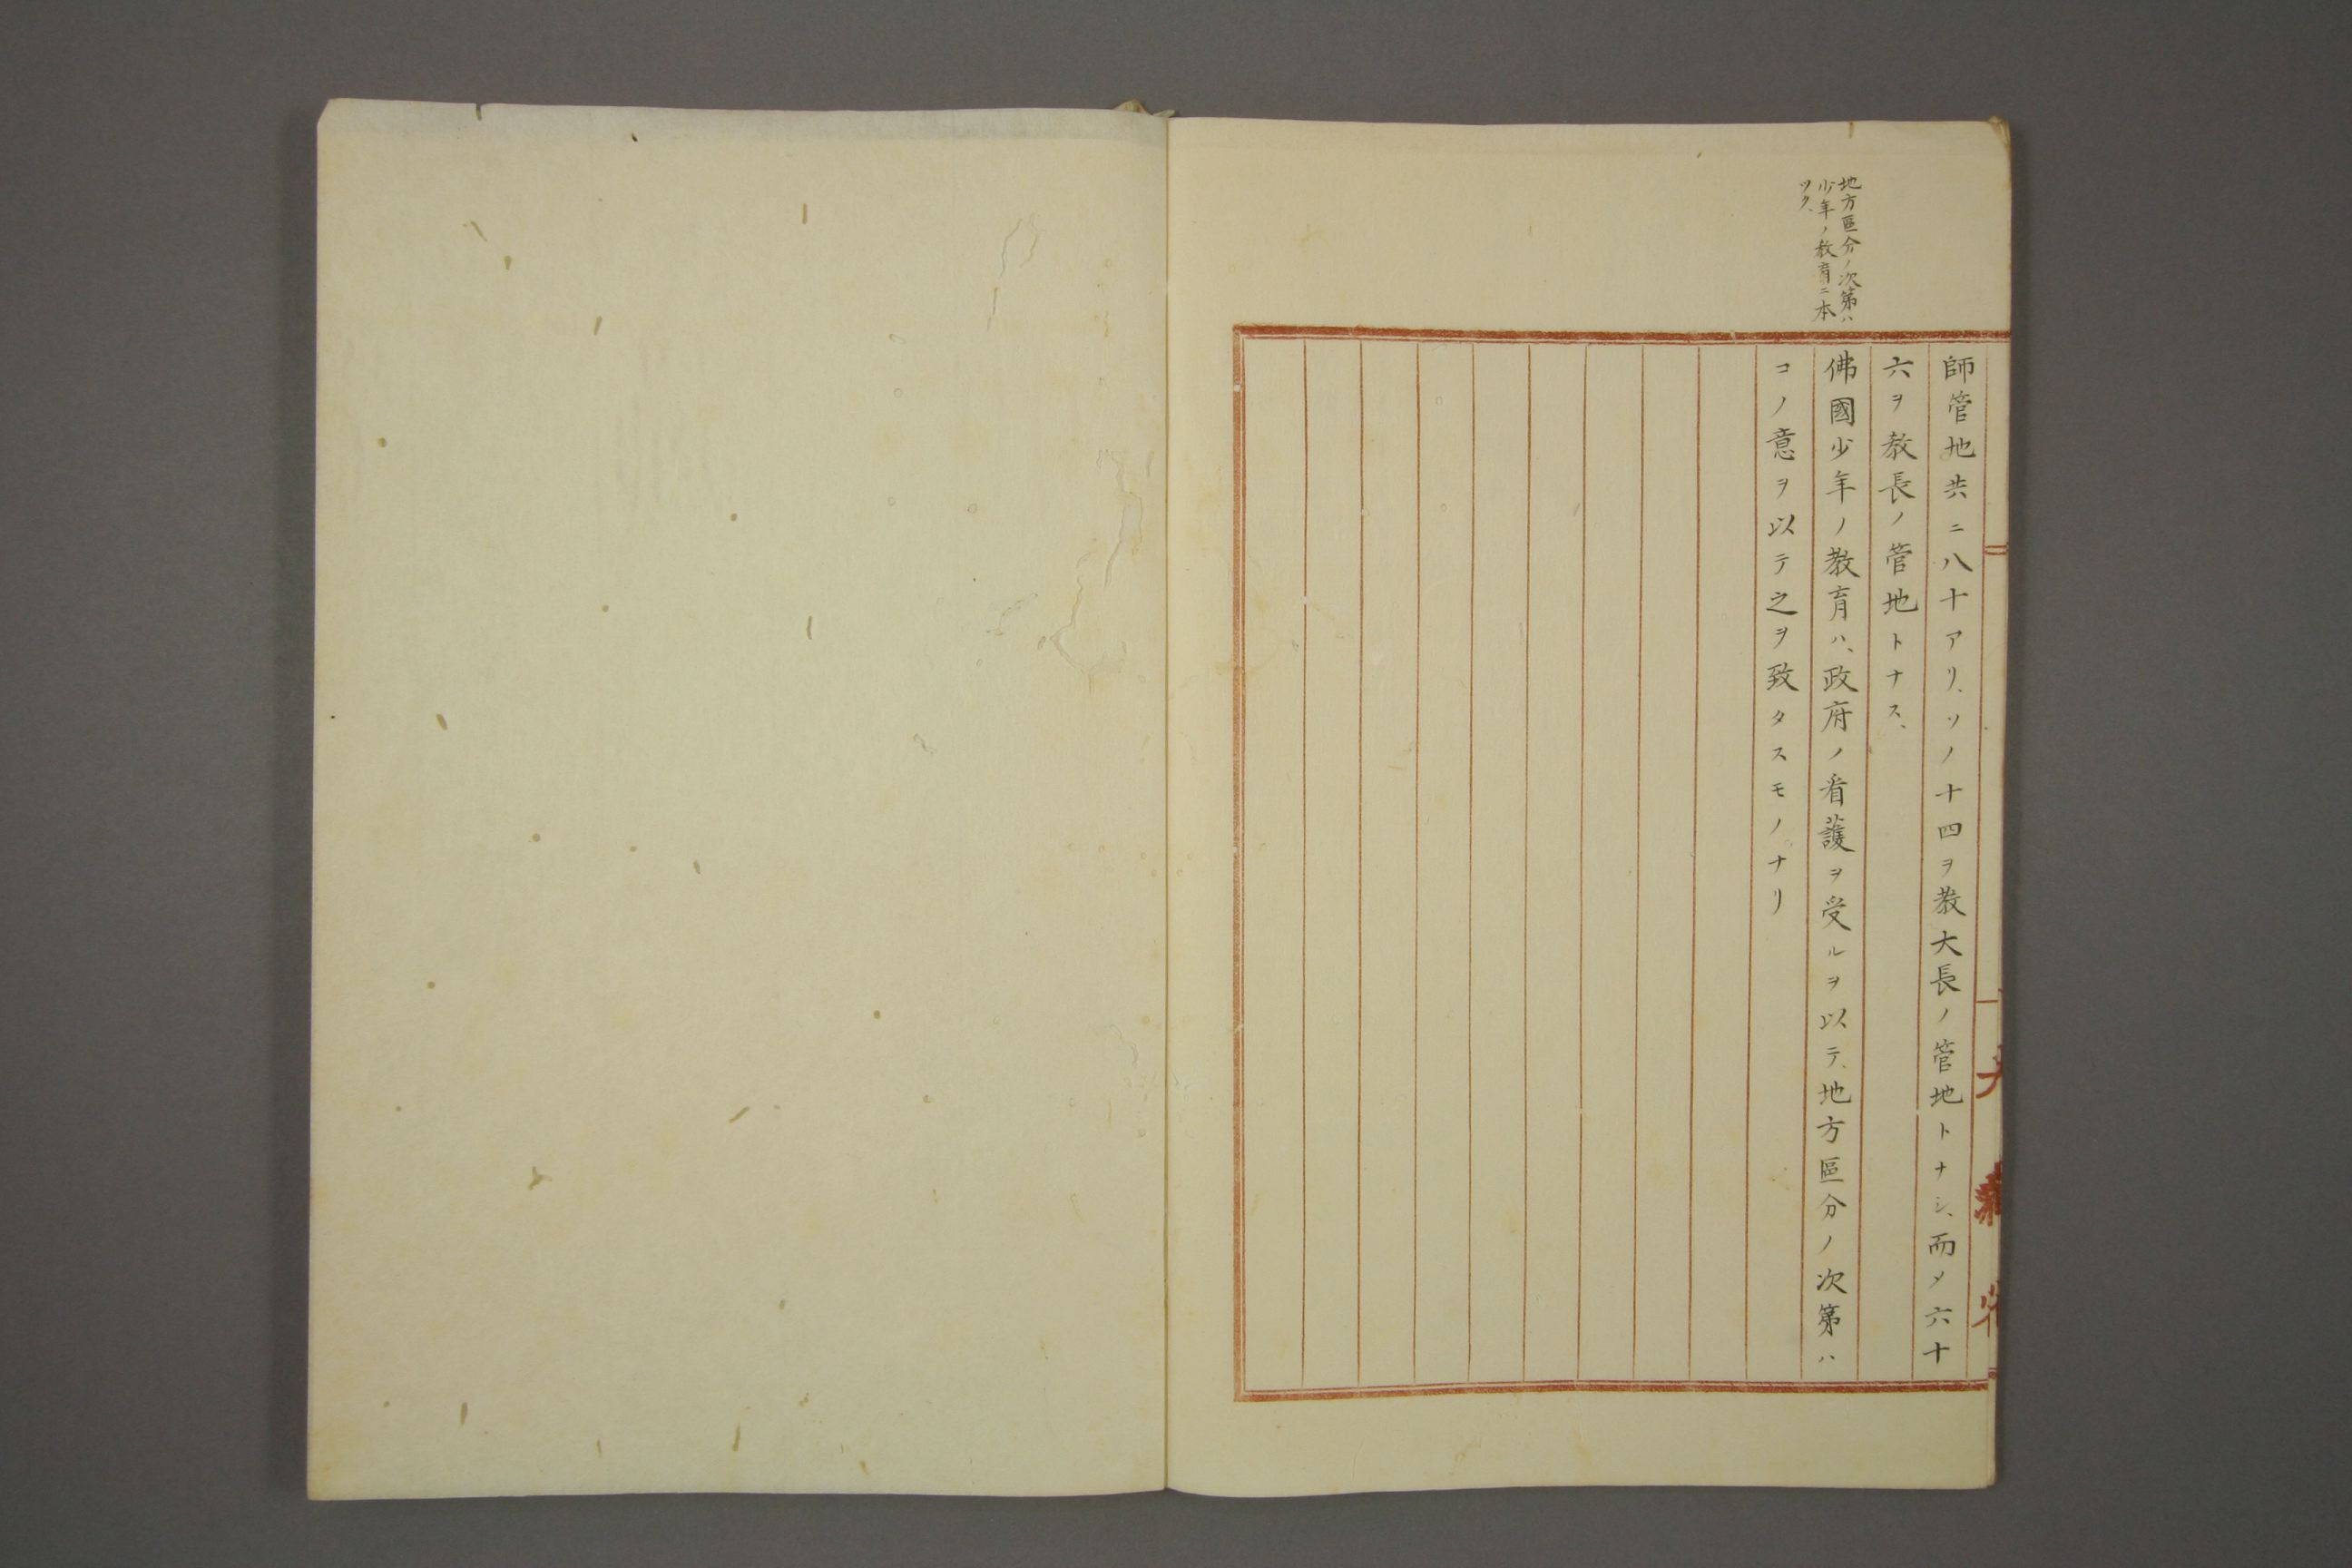 地方區分ノ次第ハ
少年ノ教育ニ本
ツク、
師管地共ニ八十アリ、ソノ十四ヲ教大長ノ管地トナシ、而〆六十
六ヲ教長ノ管地トナス、
佛國少年ノ教育ハ、政府ノ看護ヲ受ルヲ以テ、地方區分ノ次第ハ
コノ意ヲ以テ之ヲ致タスモノナリ